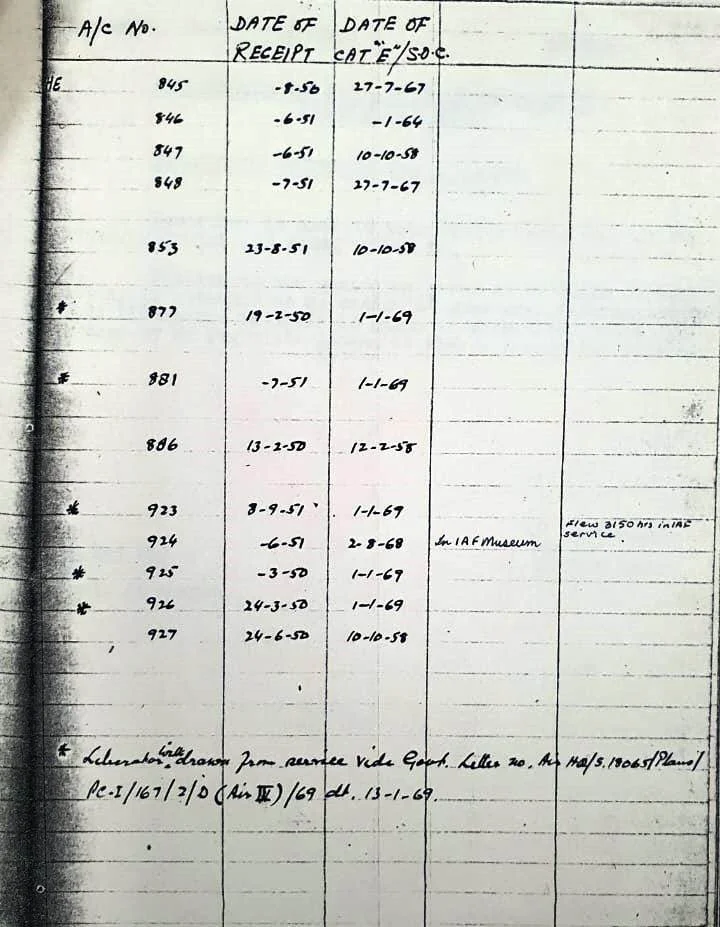 A/C No. DATE OF RECEIPT DATE OF CAT "E"/S.O.C.
HE 845 -8-50 27-7-67
846 -6-51 -1-64
847 -6-51 10-10-58
848 -7-51 27-7-67
853 23-8-51 10-10-58
* 877 19-2-50 1-1-69
* 881 -7-51 1-1-69
886 13-2-50 12-2-55
* 923 8-9-51 1-1-69
924 -6-51 2-8-68 In IAF Museum Flew 3150 hrs in IAF service.
* 925 -3-50 1-1-69
* 926 24-3-50 1-1-69
927 24-6-50 10-10-58
* Liberator withdrawn from service vide Govt. Letter no. Air HQ/S.18065/Plans/
PC-I/167/2/D (Air IV)/69 dt. 13-1-69.